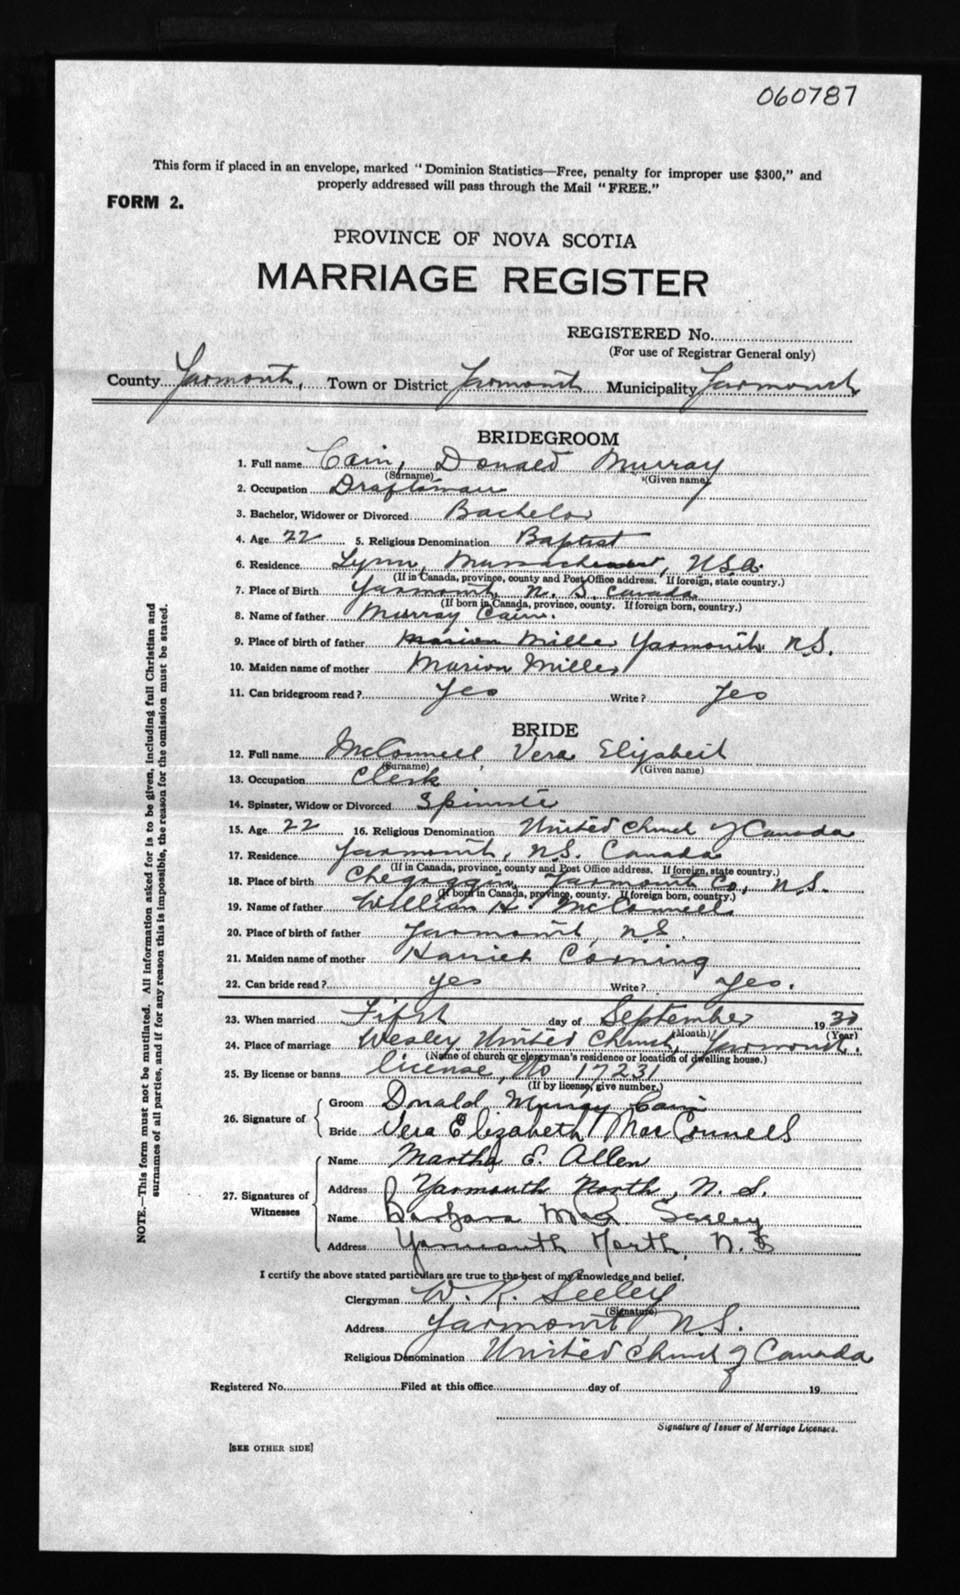 060787
This form if placed in an envelope, marked "Dominion Statistics—Free, penalty for improper use $300," and
properly addressed will pass through the Mail "FREE."
FORM 2.
PROVINCE OF NOVA SCOTIA
MARRIAGE REGISTER
REGISTERED No.
(For use of Registrar General only)
County Yarmouth, Town or District Yarmouth Municipality Yarmouth
BRIDEGROOM
1. Full name Cain, Donald Murray
(Surname) (Given name)
2. Occupation Draftsman
3. Bachelor, Widower or Divorced Bachelor
4. Age 22 5. Religious Denomination Baptist
6. Residence Lynn, Massachusetts, U.S.A.
(If in Canada, province, county and Post Office address. If foreign, state country.)
7. Place of Birth Yarmouth, N. S. Canada
(If born in Canada, province, county. If foreign born, country.)
8. Name of father Murray Cain.
9. Place of birth of father Marion Miller Yarmouth N.S.
10. Maiden name of mother Marion Miller
11. Can bridegroom read? Yes Write? Yes
BRIDE
12. Full name McConnell, Vera Elizabeth
(Surname) (Given name)
13. Occupation Clerk
14. Spinster, Widow or Divorced Spinster
15. Age 22 16. Religious Denomination United Church of Canada
17. Residence Yarmouth, N.S. Canada
(If in Canada, province, county and Post Office address. If foreign, state country.)
18. Place of birth Chegoggin, Yarmouth Co, N.S.
(If born in Canada, province, county. If foreign born, country.)
19. Name of father William H. McConnell
20. Place of birth of father Yarmouth, N.S.
21. Maiden name of mother Harriet Corning
22. Can bride read? yes Write? Yes.
23. When married First day of September 1930
(Month) (Year)
24. Place of marriage Wesley United Church, Yarmouth.
(Name of church or clergyman's residence or location of dwelling house.)
25. By license or banns license, No 17231
(If by license, give number.)
26. Signature of Groom Donald Murray Cain
Bride Vera Elizabeth MacConnell
27. Signatures of Witnesses Name Martha E. Allen
Address Yarmouth North, N. S.
Name Barbara Mae Seeley
Address Yarmouth North, N. S
I certify the above stated particulars are true to the best of my knowledge and belief.
Clergyman W. R. Seeley
(Signature)
Address Yarmouth N.S.
Religious Denomination United Church of Canada
Registered No. Filed at this office day of 19
Signature of Issuer of Marriage Licenses.
[SEE OTHER SIDE]
NOTE.—This form must not be mutilated. All information asked for is to be given, including full Christian and
surnames of all parties, and if for any reason this is impossible, the reason for the omission must be stated.